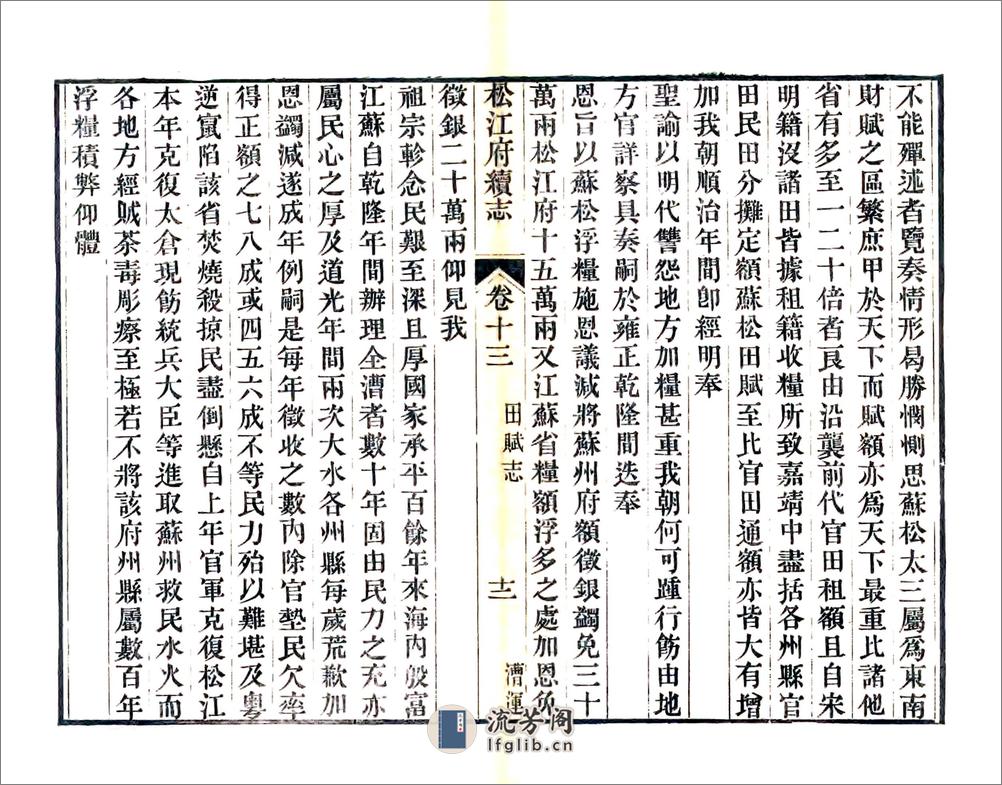 不能殫述者覽奏情形曷勝憫惻思蘇松太三屬爲東南
財賦之區繁庶甲於天下而賦額亦爲天下最重比諸他
省有多至一二十倍者良由沿襲前代官田租額且自宋
明籍沒諸田皆據租籍收糧所致嘉靖中盡括各州縣官
田民田分攤定額蘇松田賦至比官田通額亦皆大有增
加我朝順治年間卽經明奉
聖諭以明代讐怨地方加糧甚重我朝何可踵行飭由地
方官詳察具奏嗣於雍正乾隆間迭奉
恩旨以蘇松浮糧施恩議減將蘇州府額徵銀蠲免三十
萬兩松江府十五萬兩又江蘇省糧額浮多之處加恩免
松江府續志
卷十三
田賦志
十二
漕運
徵銀二十萬兩仰見我
祖宗軫念民艱至深且厚國家承平百餘年來海內殷富
江蘇自乾隆年間辦理全漕者數十年固由民力之充亦
屬民心之厚及道光年間兩次大水各州縣每歲荒歉加
恩蠲減遂成年例嗣是每年徵收之數內除官墊民欠率
得正額之七八成或四五六成不等民力殆以難堪及粵
逆竄陷該省焚燒殺掠民盡倒懸自上年官軍克復松江
本年克復太倉現飭統兵大臣等進取蘇州救民水火而
各地方經賊荼毒彫瘵至極若不將該府州縣屬數百年
浮糧積弊仰體
流芳阁
lfglib.cn